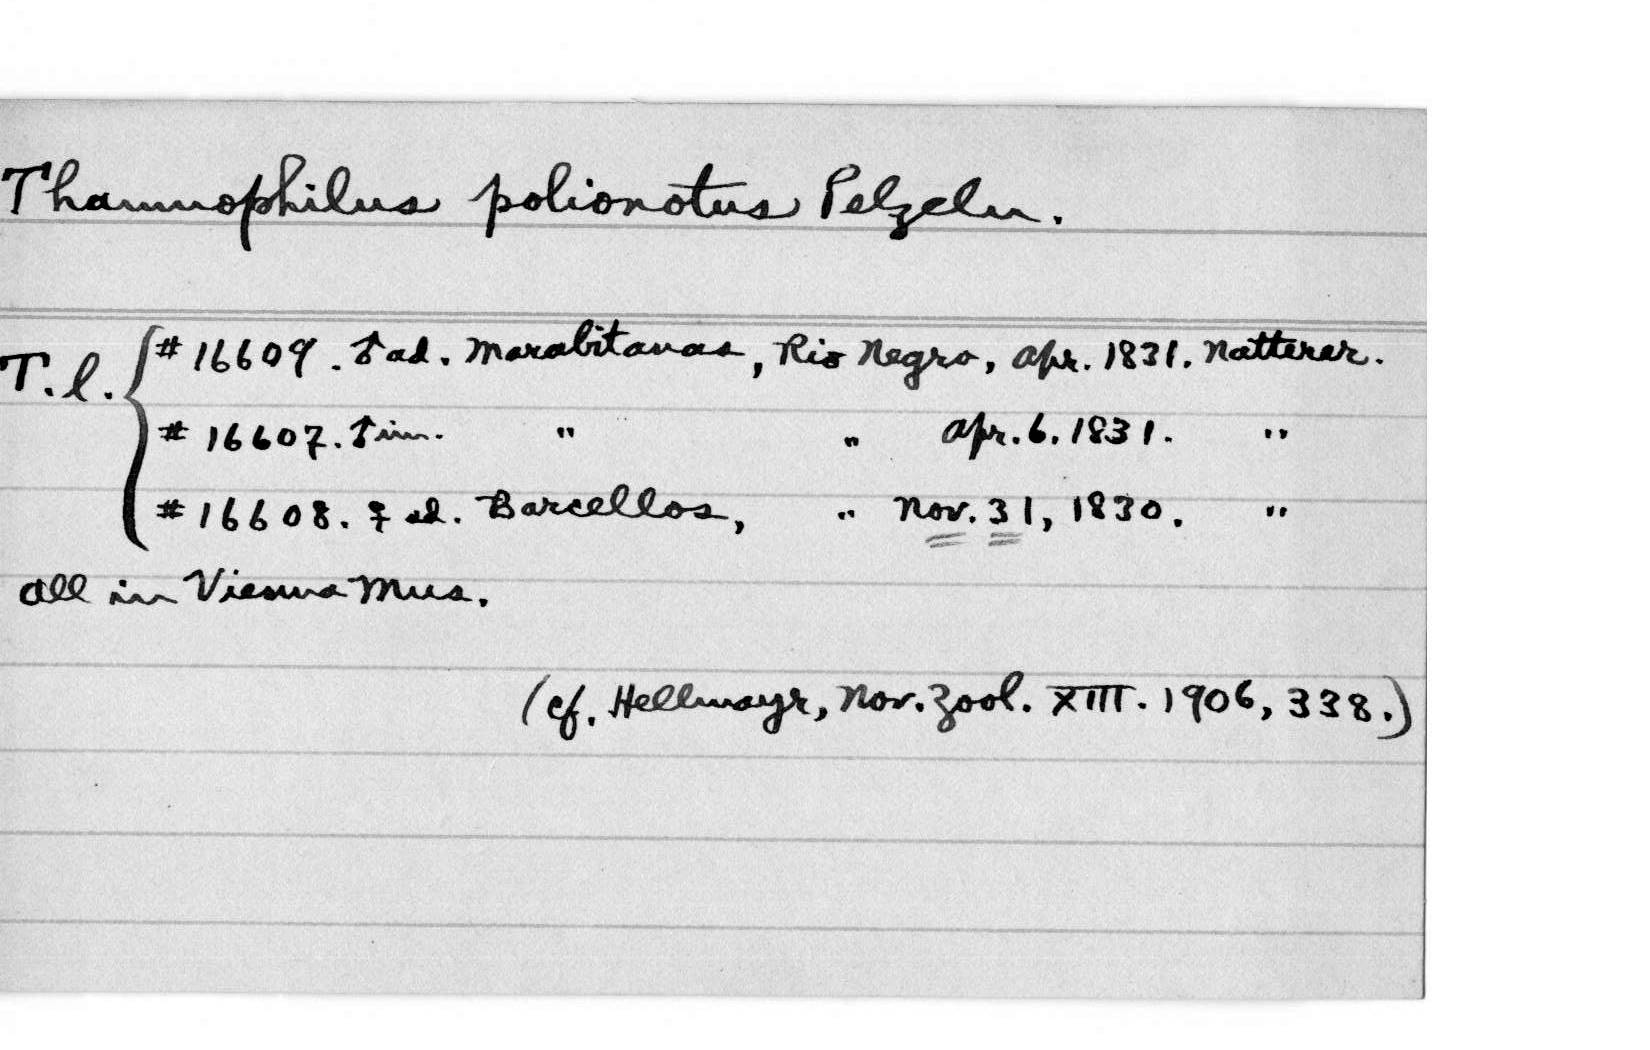 Thamnophilus polionotus Pelzeln.
T.l. { # 16609. ♂ ad. Marabitanas, Rio Negro, Apr. 1831. Natterer.
# 16607. ♂ im. " " Apr. 6. 1831. "
# 16608. ♀ ad. Barcellos, " Nov. 31, 1830. "
All in Vienna Mus.
(cf. Hellmayr, Nov. Zool. XIII. 1906, 338.)